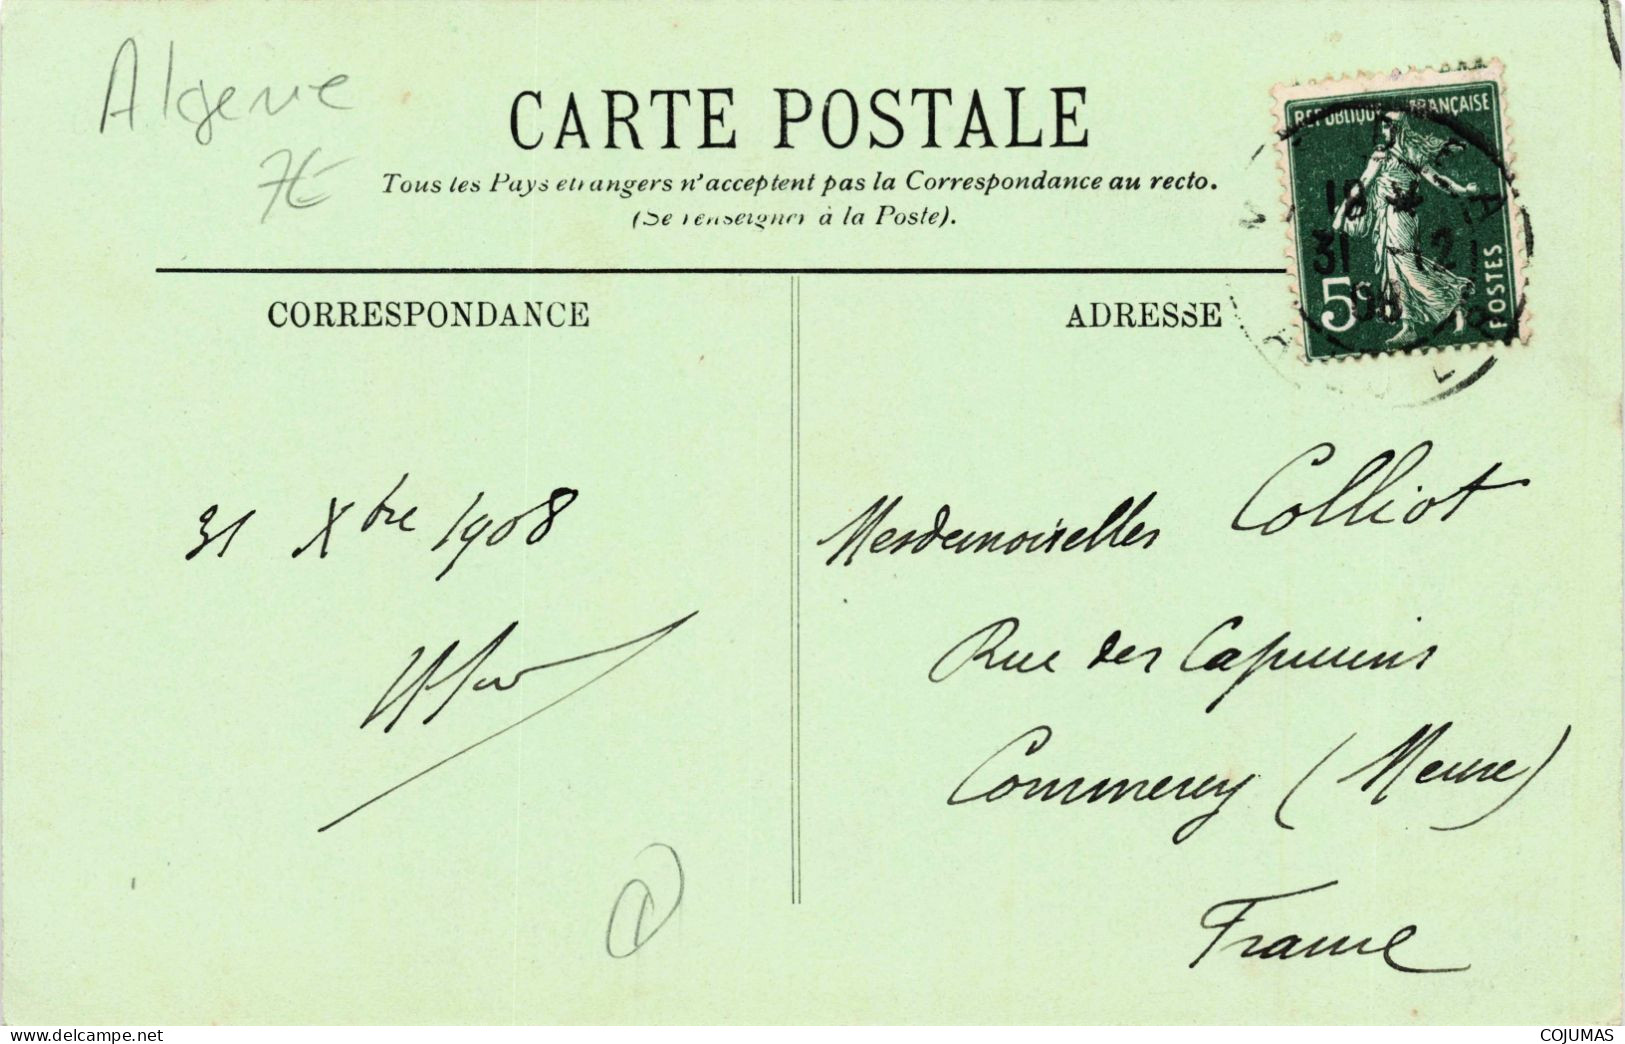 Algerie
7€
CARTE POSTALE
Tous les Pays etrangers n'acceptent pas la Correspondance au recto.
(Se renseigner à la Poste).
REPUBLIQUE FRANÇAISE
18
31 -12
08
5c
POSTES
CORRESPONDANCE
ADRESSE
31 Xbre 1908
Mesdemoiselles Colliot
Rue des Capucins
Commercy (Meuse)
France
www.delcampe.net
COJUMAS